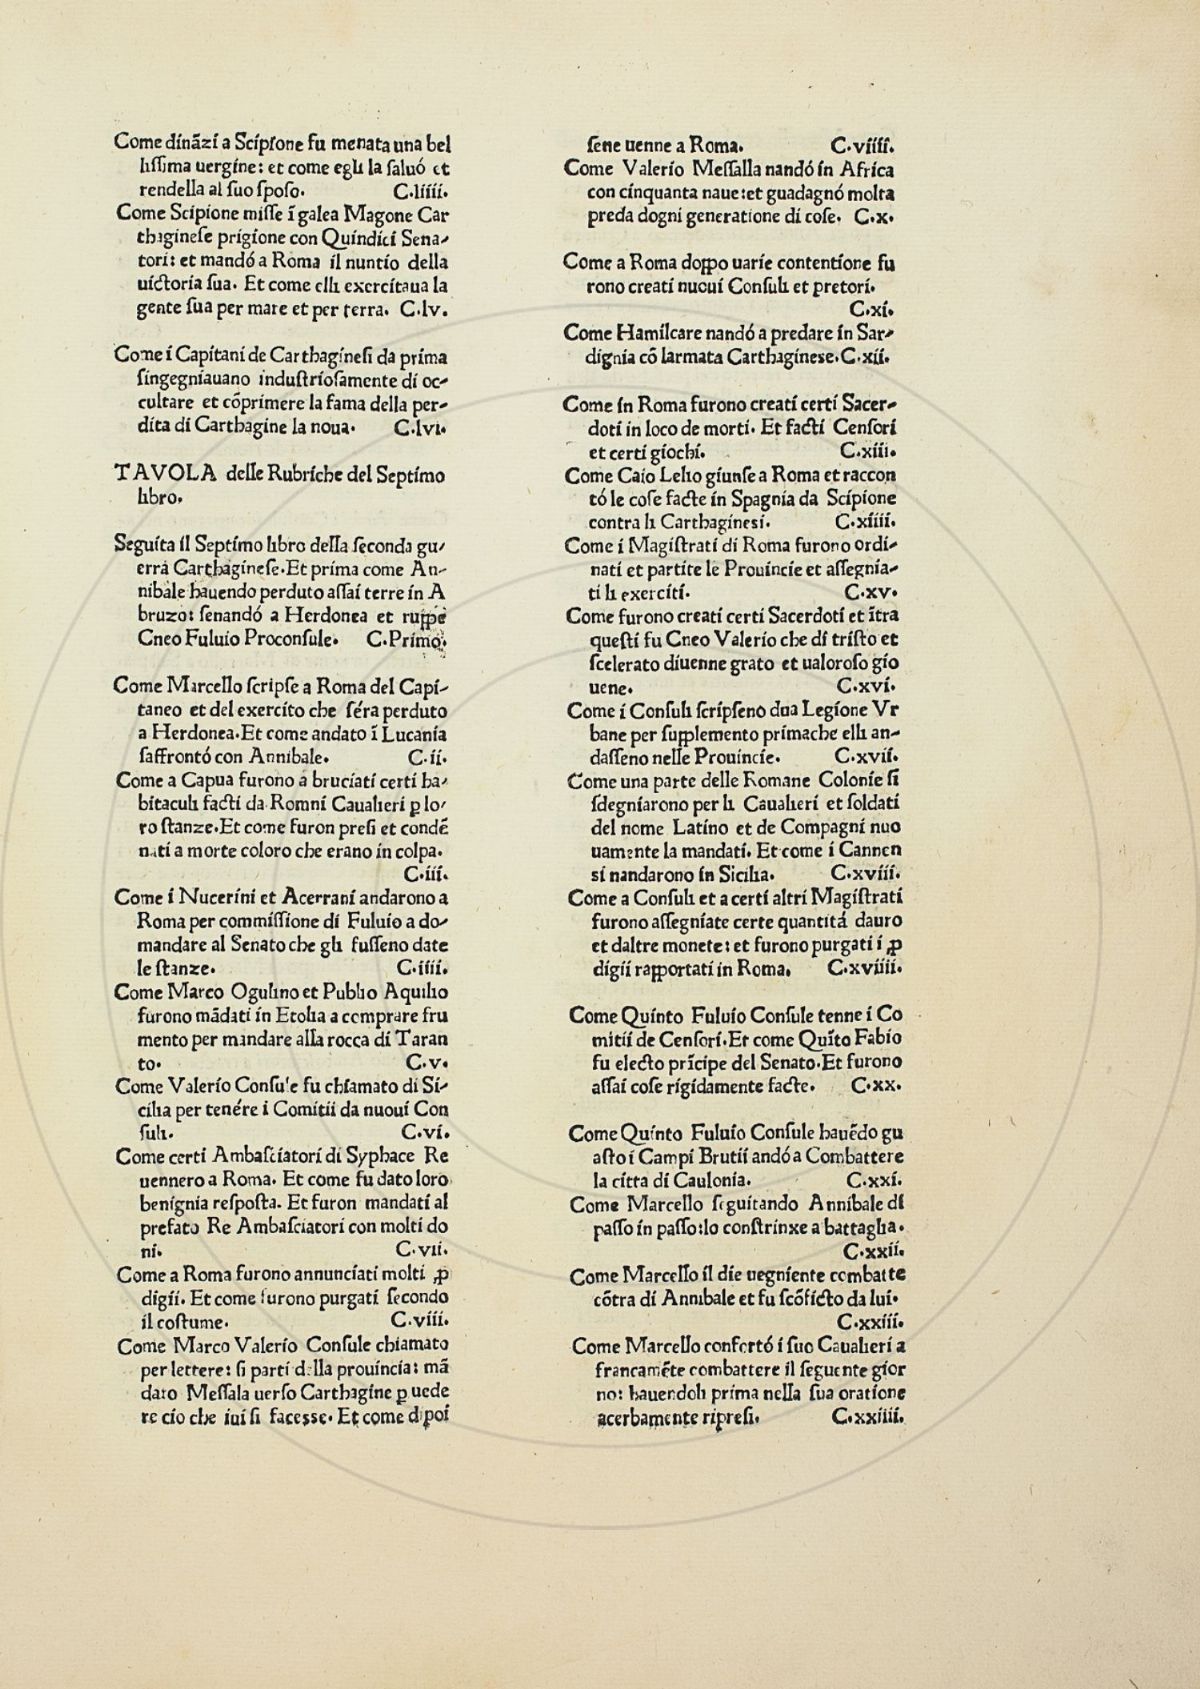 Come dinãzi a Scipione fu menata una bel
liſſima uergine: et come egli la ſaluó et
rendella al ſuo ſpoſo. C.liiii.
Come Scipione miſſe ĩ galea Magone Car
thagineſe prigione con Quindici Sena-
tori: et mandó a Roma il nuntio della
uictoria ſua. Et come elli exercitaua la
gente ſua per mare et per terra. C.lv.
Come i Capitani de Carthagineſi da prima
ſingegniauano induſtrioſamente di oc-
cultare et cõprimere la fama della per-
dita di Carthagine la noua. C.lvi.
TAVOLA delle Rubriche del Septimo
libro.
Seguita il Septimo libro della ſeconda gu-
erra Carthagineſe.Et prima come An-
nibale hauendo perduto aſſai terre in A
bruzo: ſenandó a Herdonea et ruppe
Cneo Fuluio Proconſule. C.Primo.
Come Marcello ſcripſe a Roma del Capi-
taneo et del exercito che ſéra perduto
a Herdonea.Et come andato ĩ Lucania
ſaffrontó con Annibale. C.ii.
Come a Capua furono a bruciati certi ha-
bitaculi facti da Romni Caualieri ꝑ lo-
ro ſtanze.Et come furon preſi et condẽ
nati a morte coloro che erano in colpa.
C.iii.
Come i Nucerini et Acerrani andarono a
Roma per commiſſione di Fuluio a do-
mandare al Senato che gli fuſſeno date
le ſtanze. C.iiii.
Come Marco Ogulino et Publio Aquilio
furono mãdati in Etolia a comprare fru
mento per mandare alla rocca di Taran
to. C.v.
Come Valerio Conſule fu chiamato di Si-
cilia per tenére i Comitii da nuoui Con
ſuli. C.vi.
Come certi Ambaſciatori di Syphace Re
uennero a Roma. Et come fu dato loro
benignia reſpoſta. Et furon mandati al
prefato Re Ambaſciatori con molti do
ni. C.vii.
Come a Roma furono annunciati molti ꝓ
digii. Et come furono purgati ſecondo
il coſtume. C.viii.
Come Marco Valerio Conſule chiamato
per lettere: ſi parti della prouincia: mã
dato Meſſala uerſo Carthagine ꝑ uede
re cio che iui ſi faceſſe. Et come dipoi
ſene uenne a Roma. C.viiii.
Come Valerio Meſſalla nandó in Africa
con cinquanta naue:et guadagnó molta
preda dogni generatione di coſe. C.x.
Come a Roma doppo uarie contentione fu
rono creati nuoui Conſuli et pretori.
C.xi.
Come Hamilcare nandó a predare in Sar-
dignia cõ larmata Carthagineſe.C.xii.
Come in Roma furono creati certi Sacer-
doti in loco de morti. Et facti Cenſori
et certi giochi. C.xiii.
Come Caio Lelio giunſe a Roma et raccon
tó le coſe facte in Spagnia da Scipione
contra li Carthagineſi. C.xiiii.
Come i Magiſtrati di Roma furono ordi-
nati et partite le Prouincie et aſſegnia-
ti li exerciti. C.xv.
Come furono creati certi Sacerdoti et ĩtra
queſti fu Cneo Valerio che di triſto et
ſcelerato diuenne grato et ualoroſo gio
uene. C.xvi.
Come i Conſuli ſcripſeno dua Legione Vr
bane per ſupplemento primache elli an-
daſſeno nelle Prouincie. C.xvii.
Come una parte delle Romane Colonie ſi
ſdegniarono per li Caualieri et ſoldati
del nome Latino et de Compagni nuo
uamente la mandati. Et come i Cannen
si nandarono in Sicilia. C.xviii.
Come a Conſuli et a certi altri Magiſtrati
furono aſſegniate certe quantitá dauro
et daltre monete: et furono purgati i ꝓ
digii rapportati in Roma. C.xviiii.
Come Quinto Fuluio Conſule tenne i Co
mitii de Cenſori.Et come Quĩto Fabio
fu electo prĩcipe del Senato.Et furono
aſſai coſe rigidamente facte. C.xx.
Come Quinto Fuluio Conſule hauẽdo gu
aſto i Campi Brutii andó a Combattere
la citta di Caulonia. C.xxi.
Come Marcello ſeguitando Annibale di
paſſo in paſſo:lo conſtrinxe a battaglia.
C.xxii.
Come Marcello il die uegniente combatte
cõtra di Annibale et fu ſcõficto da lui.
C.xxiii.
Come Marcello confortó i ſuo Caualieri a
francamẽte combattere il ſeguente gior
no: hauendoli prima nella ſua oratione
acerbamente ripreſi. C.xxiiii.